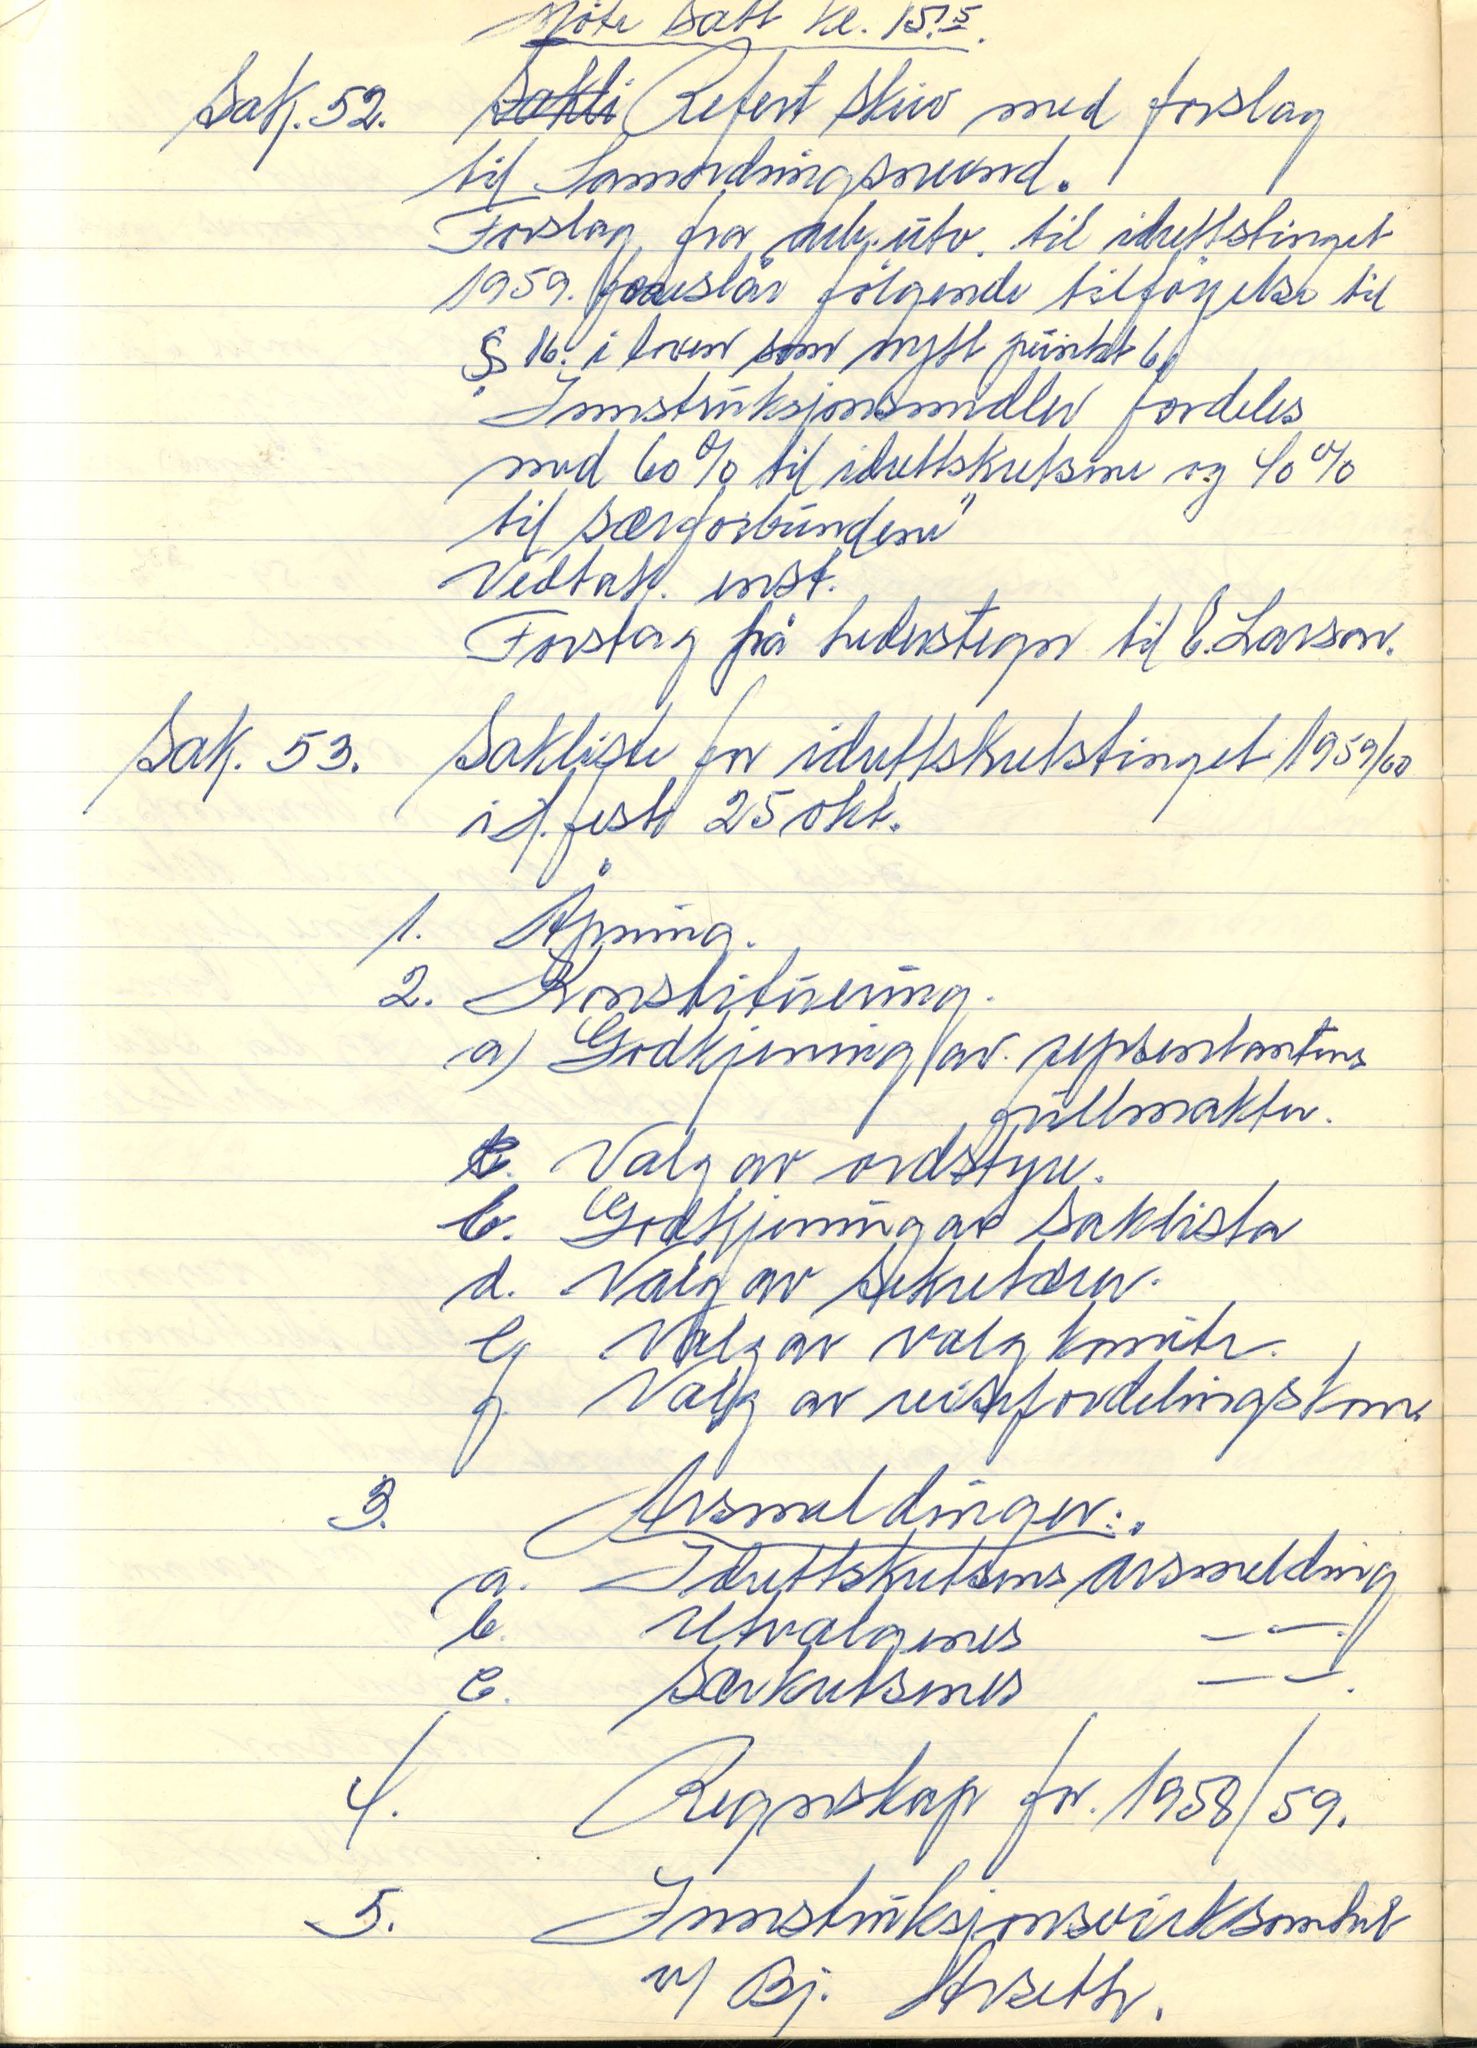 Møte satt kl. 15.5.
Sak. 52. Sakli Refert skiv med forslag
til Samordningsnevnd.
Forslag fra arb.utv. til idrettstinget
1959. foreslår følgende tilføyelse til
§ 16. i loven som nytt punkt 6.
"Innstruksjonsmidler fordeles
med 60% til idrettskretsene og 40%
til særforbundene"
Vedtak. enst.
Forslag på hederstegn til E. Larson.
Sak. 53. Sakliste for idrettskretstinget 1959/60
i K. 25 okt.
1. Åpning.
2. Konstituering.
a) Godkjening av. repsentantens
fullmakter.
Valg av ordstyre.
c. Godkjening av saklista
d. Valg av sekretærer.
e. Valg av valgkomite.
f. Valg av reisefordelingskom.
3. Årsmeldinger:.
a. Idrettskretsens årsmelding
b. Utvalgenes — — .
c. Særkretsenes — — .
4. Regnskap for. 1958/59.
5. Innstruksjonsvirksomhet
v/ Bj. Årseth.